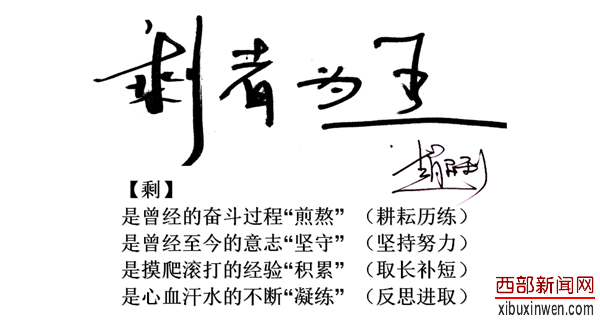 剩者为王
赵胜利
【剩】
是曾经的奋斗过程“煎熬”（耕耘历练）
是曾经至今的意志“坚守”（坚持努力）
是摸爬滚打的经验“积累”（取长补短）
是心血汗水的不断“凝练”（反思进取）
西部新闻网
xibuxinwen.com